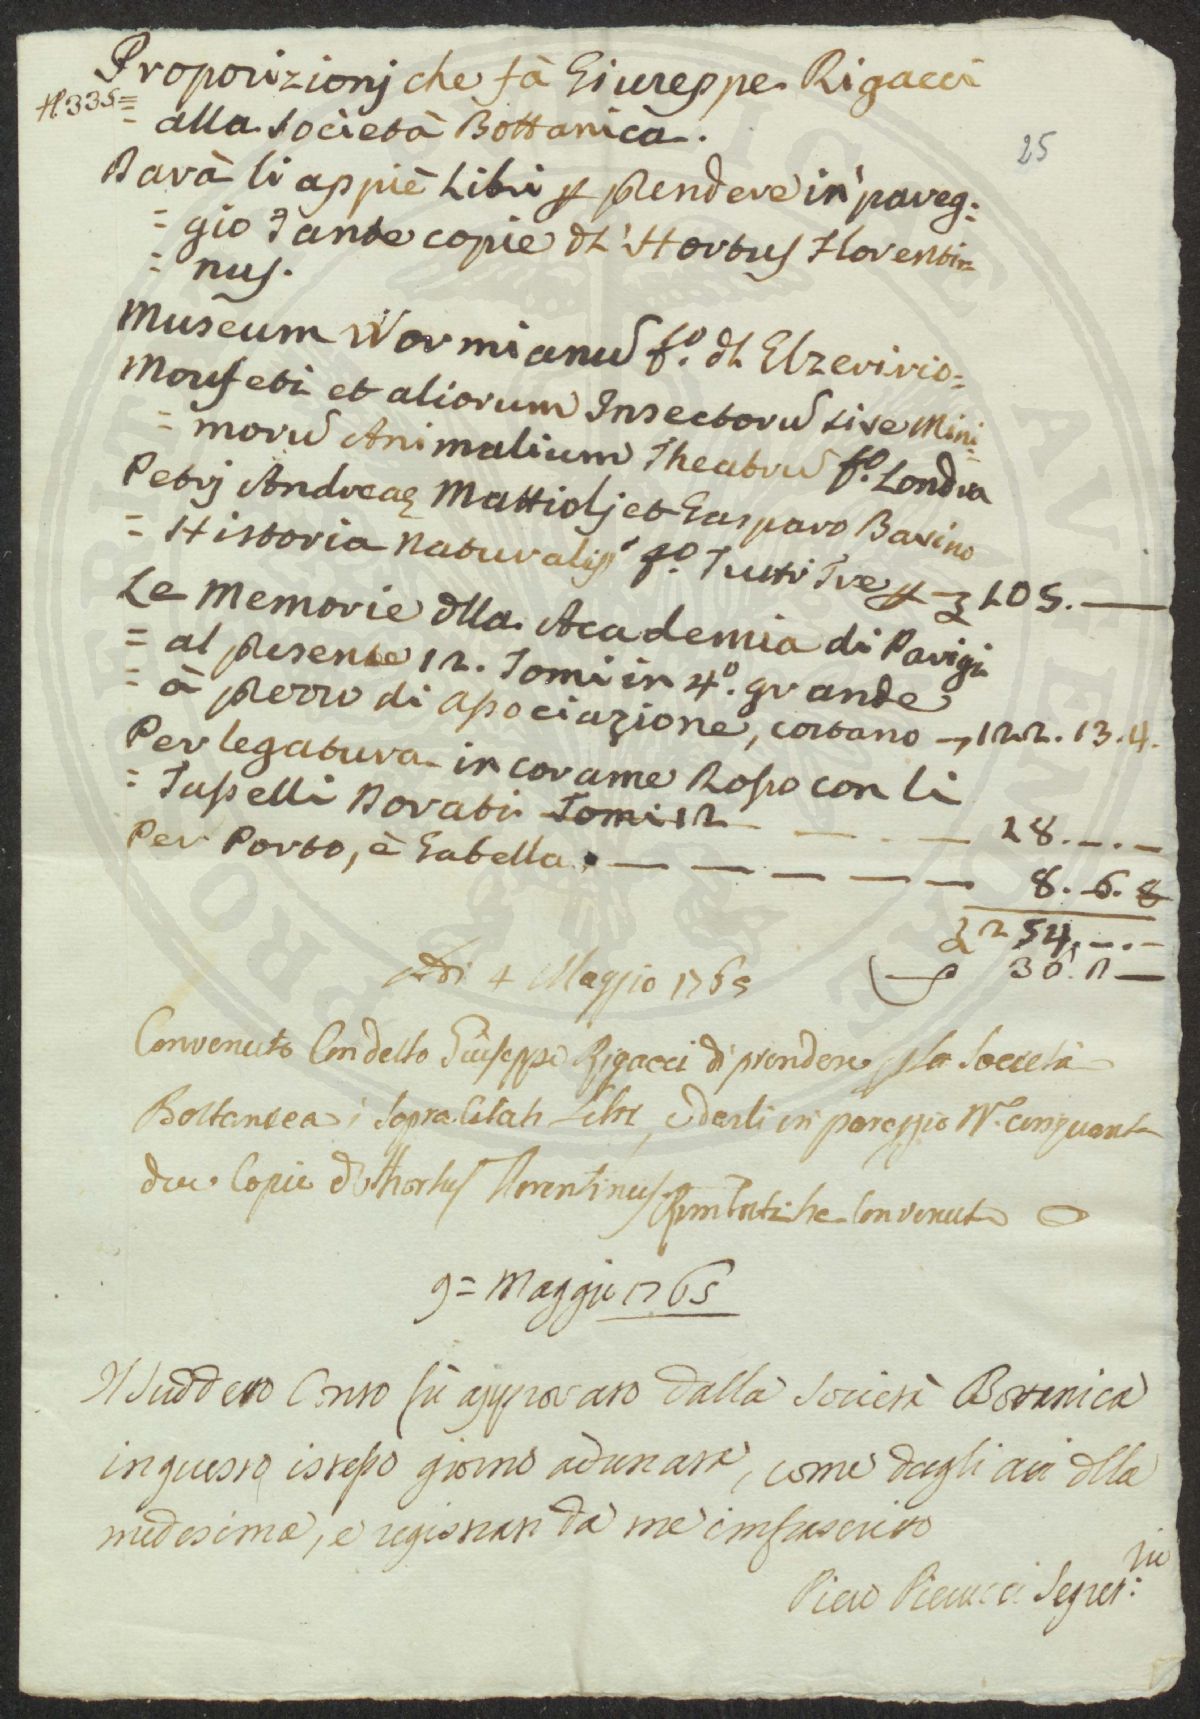 Proporizionj che fà Giuseppe Rigacci
N. 335=
= alla Società Bottanica.
25
Darà li appiè Libri p prendere in pareg:
= gio Tante copie dl' Hortus Florentin=
= nus.
Museum Wormianū fo. dl Elzevirio=
Moufeti et aliorum Insectorū sive Mini=
= morū Animalium Theatrū fo. Londra
Petrj Andreae Mattiolj et Gasparo Bavino
= Historia naturalis fo. Tutti Tre p £ 105. —
Le Memorie dlla Academia di Parigi
= al presente 12. Tomi in 4o. grande
= à prezzo di Associazione, costano 122. 13. 4.
Per legatura in corame Rosso con li
= Tasselli Dorati Tomi 12 — — — 28. — . —
Per Porto, è Gabella. — — — — — 8. 6. 8
£ 254. — . —
Adi 4 Maggio 1765
Convenuto Con detto Giuseppe Rigacci di prendere p la Società
Bottanica i sopra Citati Libri, e darli in pareggio No. cinquanta
due Copie d'Hortus Florentinus convenuto
9= Maggio 1765
Il Suddetto Conto fù approvato dalla Società Botanica
in questo istesso giorno adunata, come dagli atti dlla
medesima, e registrati da me infrascritto
Piero Segret:rio